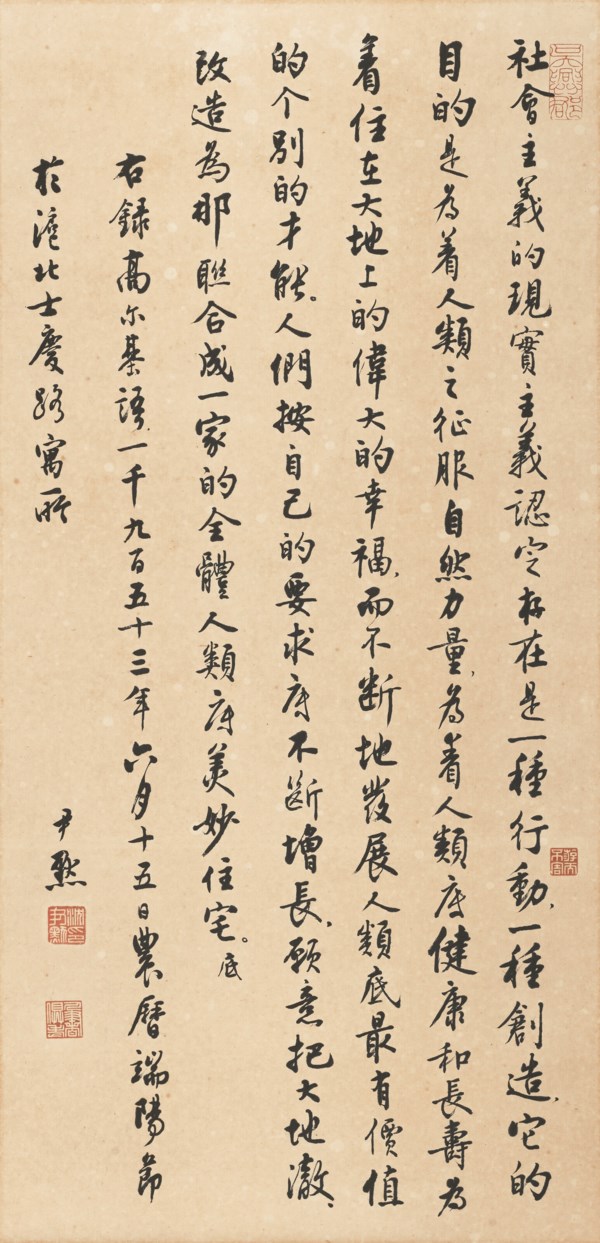 社會主義的現實主義認定存在是一種行動,一種創造,它的
目的是為着人類之征服自然力量,為着人類底健康和長壽為
着住在大地上的偉大的幸福,而不斷地發展人類底最有價值
的个別的才能。人們按自己的要求底不斷增長,願意把大地澈、
改造為那聯合成一家的全體人類底美妙住宅。底
右錄高尔基語,一千九百五十三年六月十五日農曆端陽節
於滬北士慶路寓所
尹默